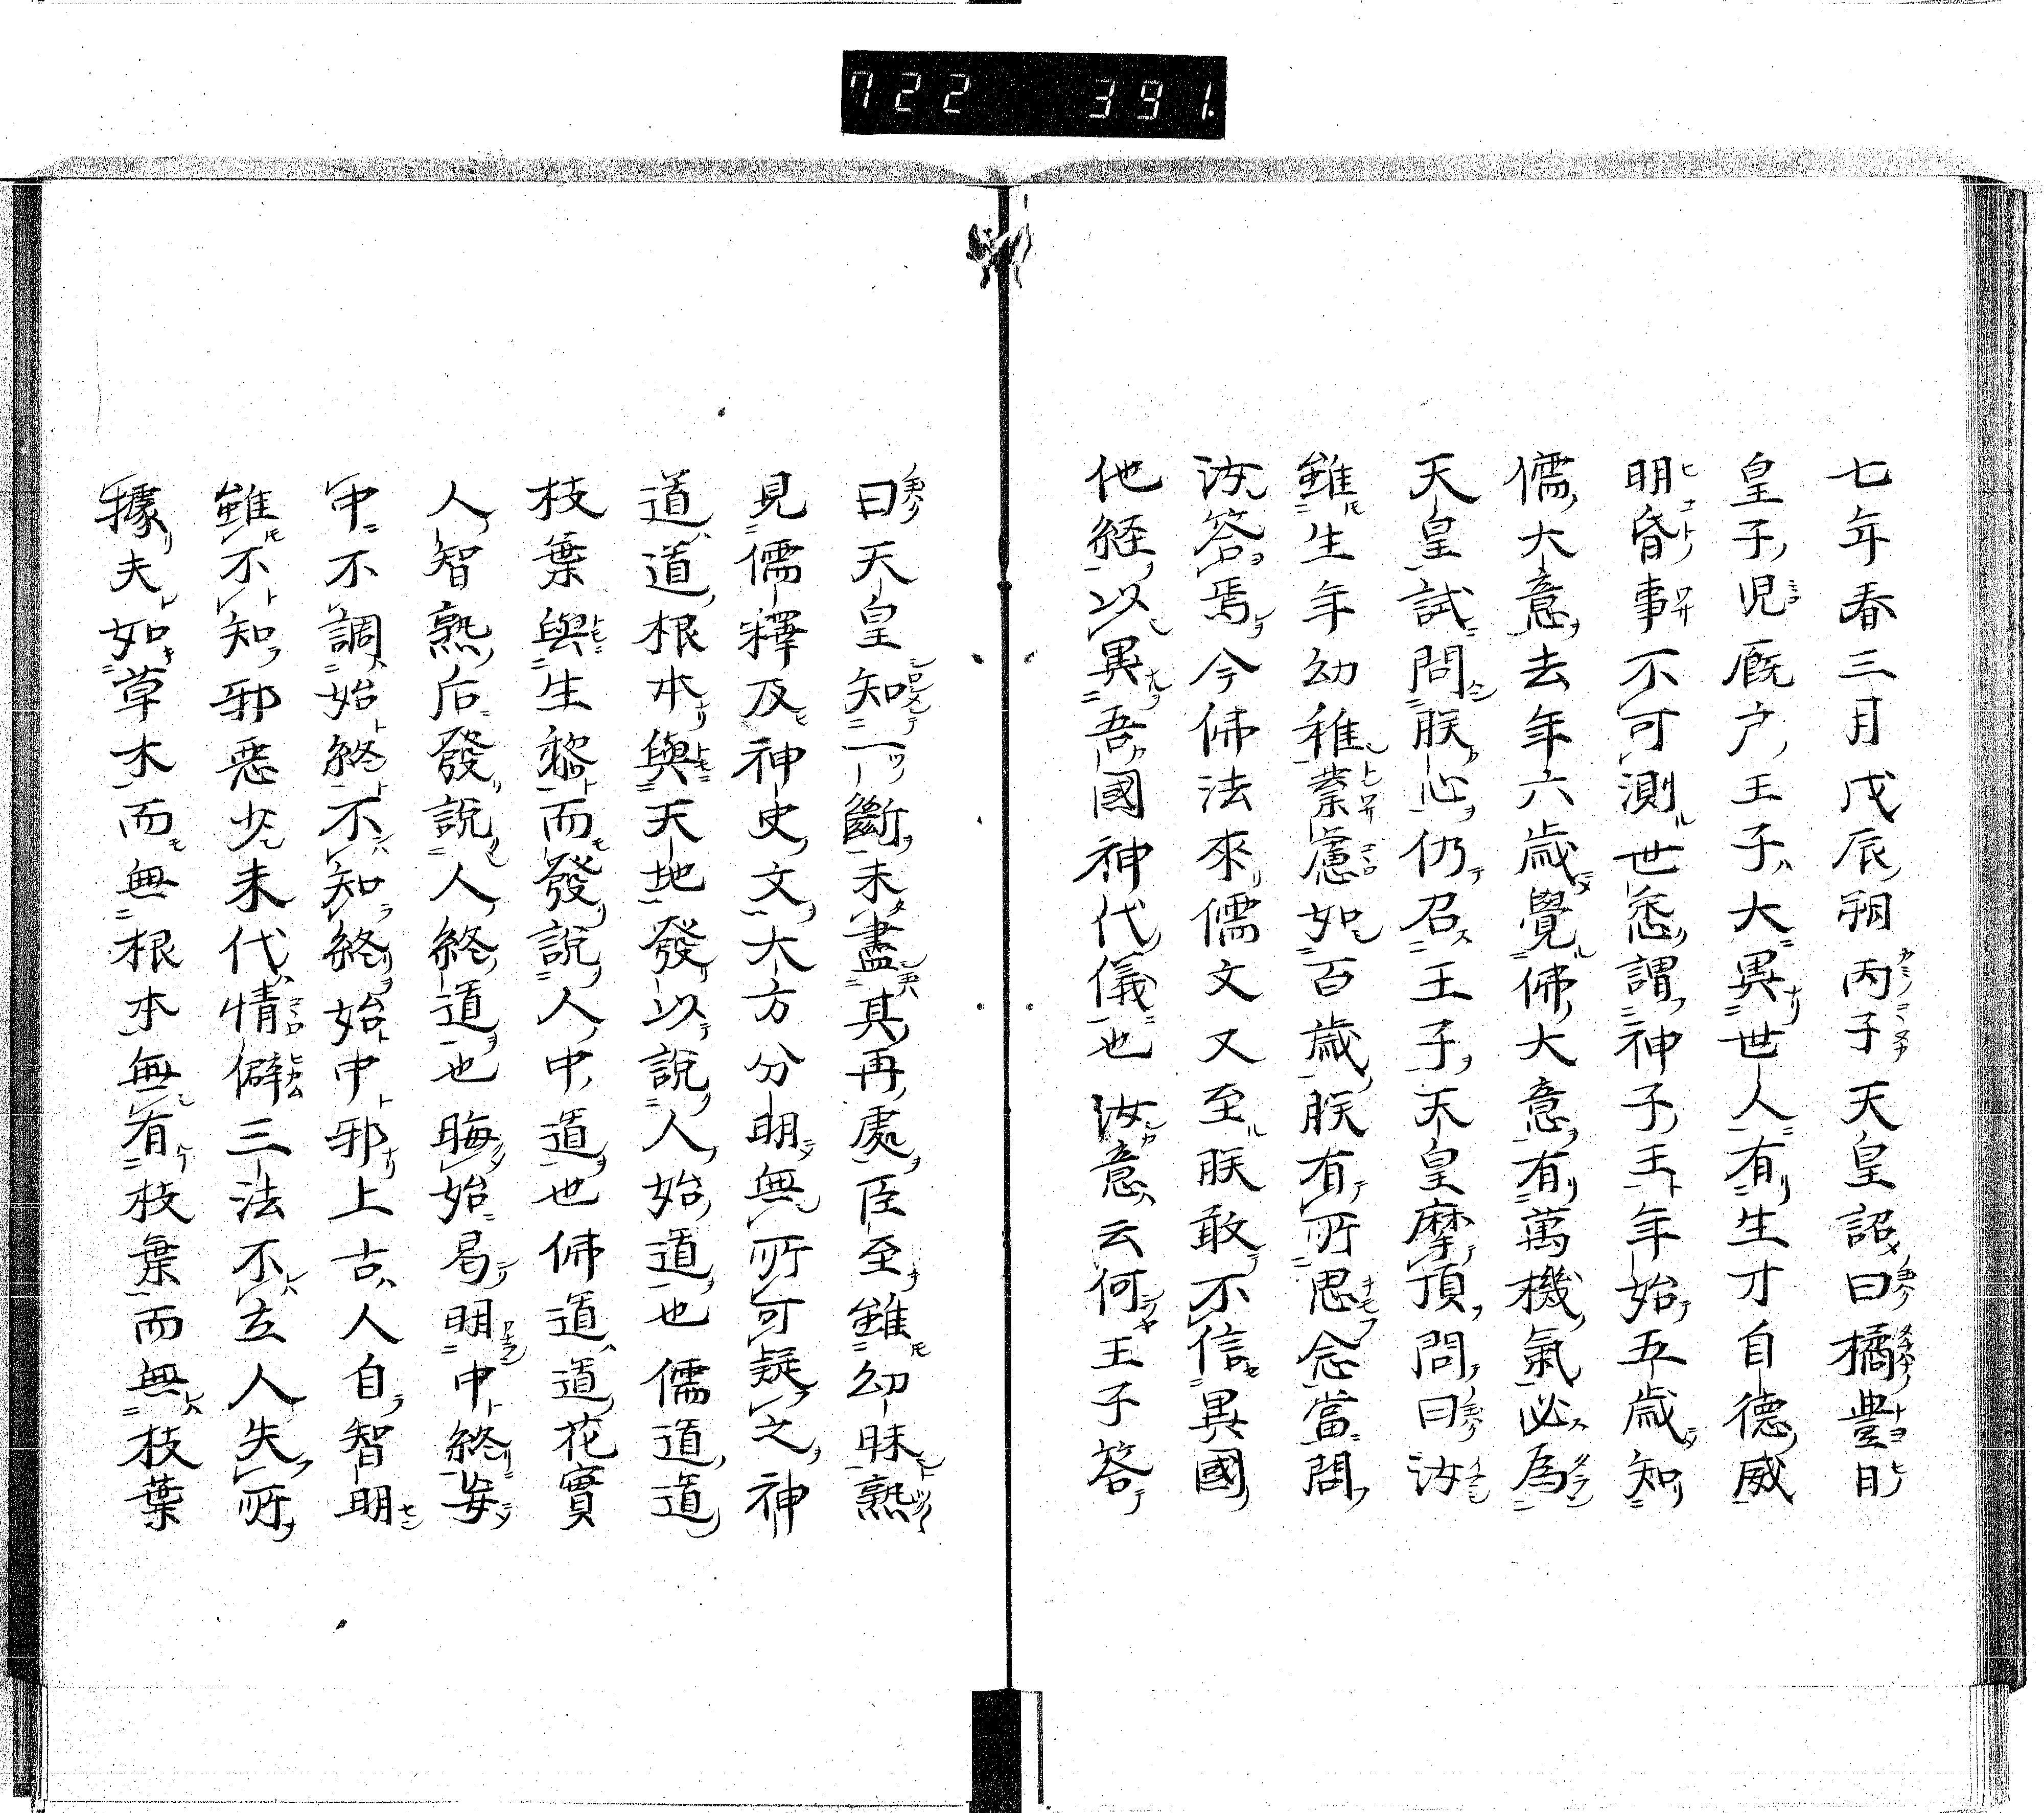 722 391.
七年春三月戊辰朔丙子天皇詔曰橘豊日
皇子児厩戸王子大異世人有生才自德威
明昏事不可測世悉謂神子王年始五歳知
儒大意去年六歳覺佛大意有萬機氣必為
天皇試問朕心仍召王子天皇摩頂問曰汝
雖生年幼稚蒙慮如百歳朕有所思念當問
汝答焉今佛法來儒文又至朕敢不信異國
他経以異吾國神代儀也汝意云何王子答
曰天皇知一斷未盡其再處臣至雖幼昧熟
見儒釋及神史文大方分明無所可疑之神
道道根本與天地發以說人始道也儒道道
枝葉與生黎而發說人中道也佛道道花實
人智熟后發說人終道也晦始易明中終安
中不調始終不知終始中邪上古人自智明
雖不知邪惡少末代情僻三法不立人失所
據夫如草木而無根本無有枝葉而無枝葉